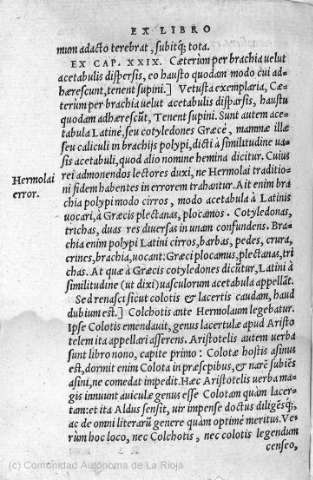 EX LIBRO
mum adacto terebrat, subitq; tota.
EX CAP. XXIX. Cæterũm per brachia uelut
acetabulis dispersis, eo haustu quodam modo cui ad-
hærescunt, tenent supini.] Vetusta exemplaria, Cæ-
terùm per brachia uelut acetabulis dispersis, haustu
quodam adhærescũt, Tenent supini. Sunt autem ace-
tabula Latinè, seu cotyledones Græcè, mammæ illæ
seu caliculi in brachijs polypi, dicti à similitudine ua-
sis acetabuli, quod alio nomine hemina dicitur. Cuius
rei admonendos lectores duxi, ne Hermolai traditio-
ni fidem habentes in errorem trahantur. Ait enim bra
chia polypi modo cirros, modo acetabula à Latinis
uocari, à Græcis plectanas, plocamos. Cotyledonas,
trichas, duas res diuersas in unam confundens. Bra-
chia enim polypi Latini cirros, barbas, pedes, crura,
crines, brachia, uocant: Græci plocamus, plectanas, tri
chas. At quæ à Græcis cotyledones dicũtur, Latini à
similitudine (ut dixi) uasculorum acetabula appellãt.
Sed renasci sicut colotis & lacertis caudam, haud
dubium est.] Colchotis ante Hermolaum legebatur.
Ipse Colotis emendauit, genus lacertulæ apud Aristo
telem ita appellari asserens. Aristotelis autem uerba
sunt libro nono, capite primo: Colotæ hostis asinus
est, dormit enim Colota in præsepibus, & narẽ subiẽs
asini, ne comedat impedit. Hæc Aristotelis uerba ma-
gis innuunt auiculæ genus esse Colotam quàm lacer-
tam: et ita Aldus sensit, uir impense doctus diligẽsq;,
ac de omni literarũ genere quàm optimè meritus. Ve-
rùm hoc loco, nec Colchotis, nec colotis legendum
censeo,
Hermolai
error.
(c) Comunidad Autónoma de La Rioja